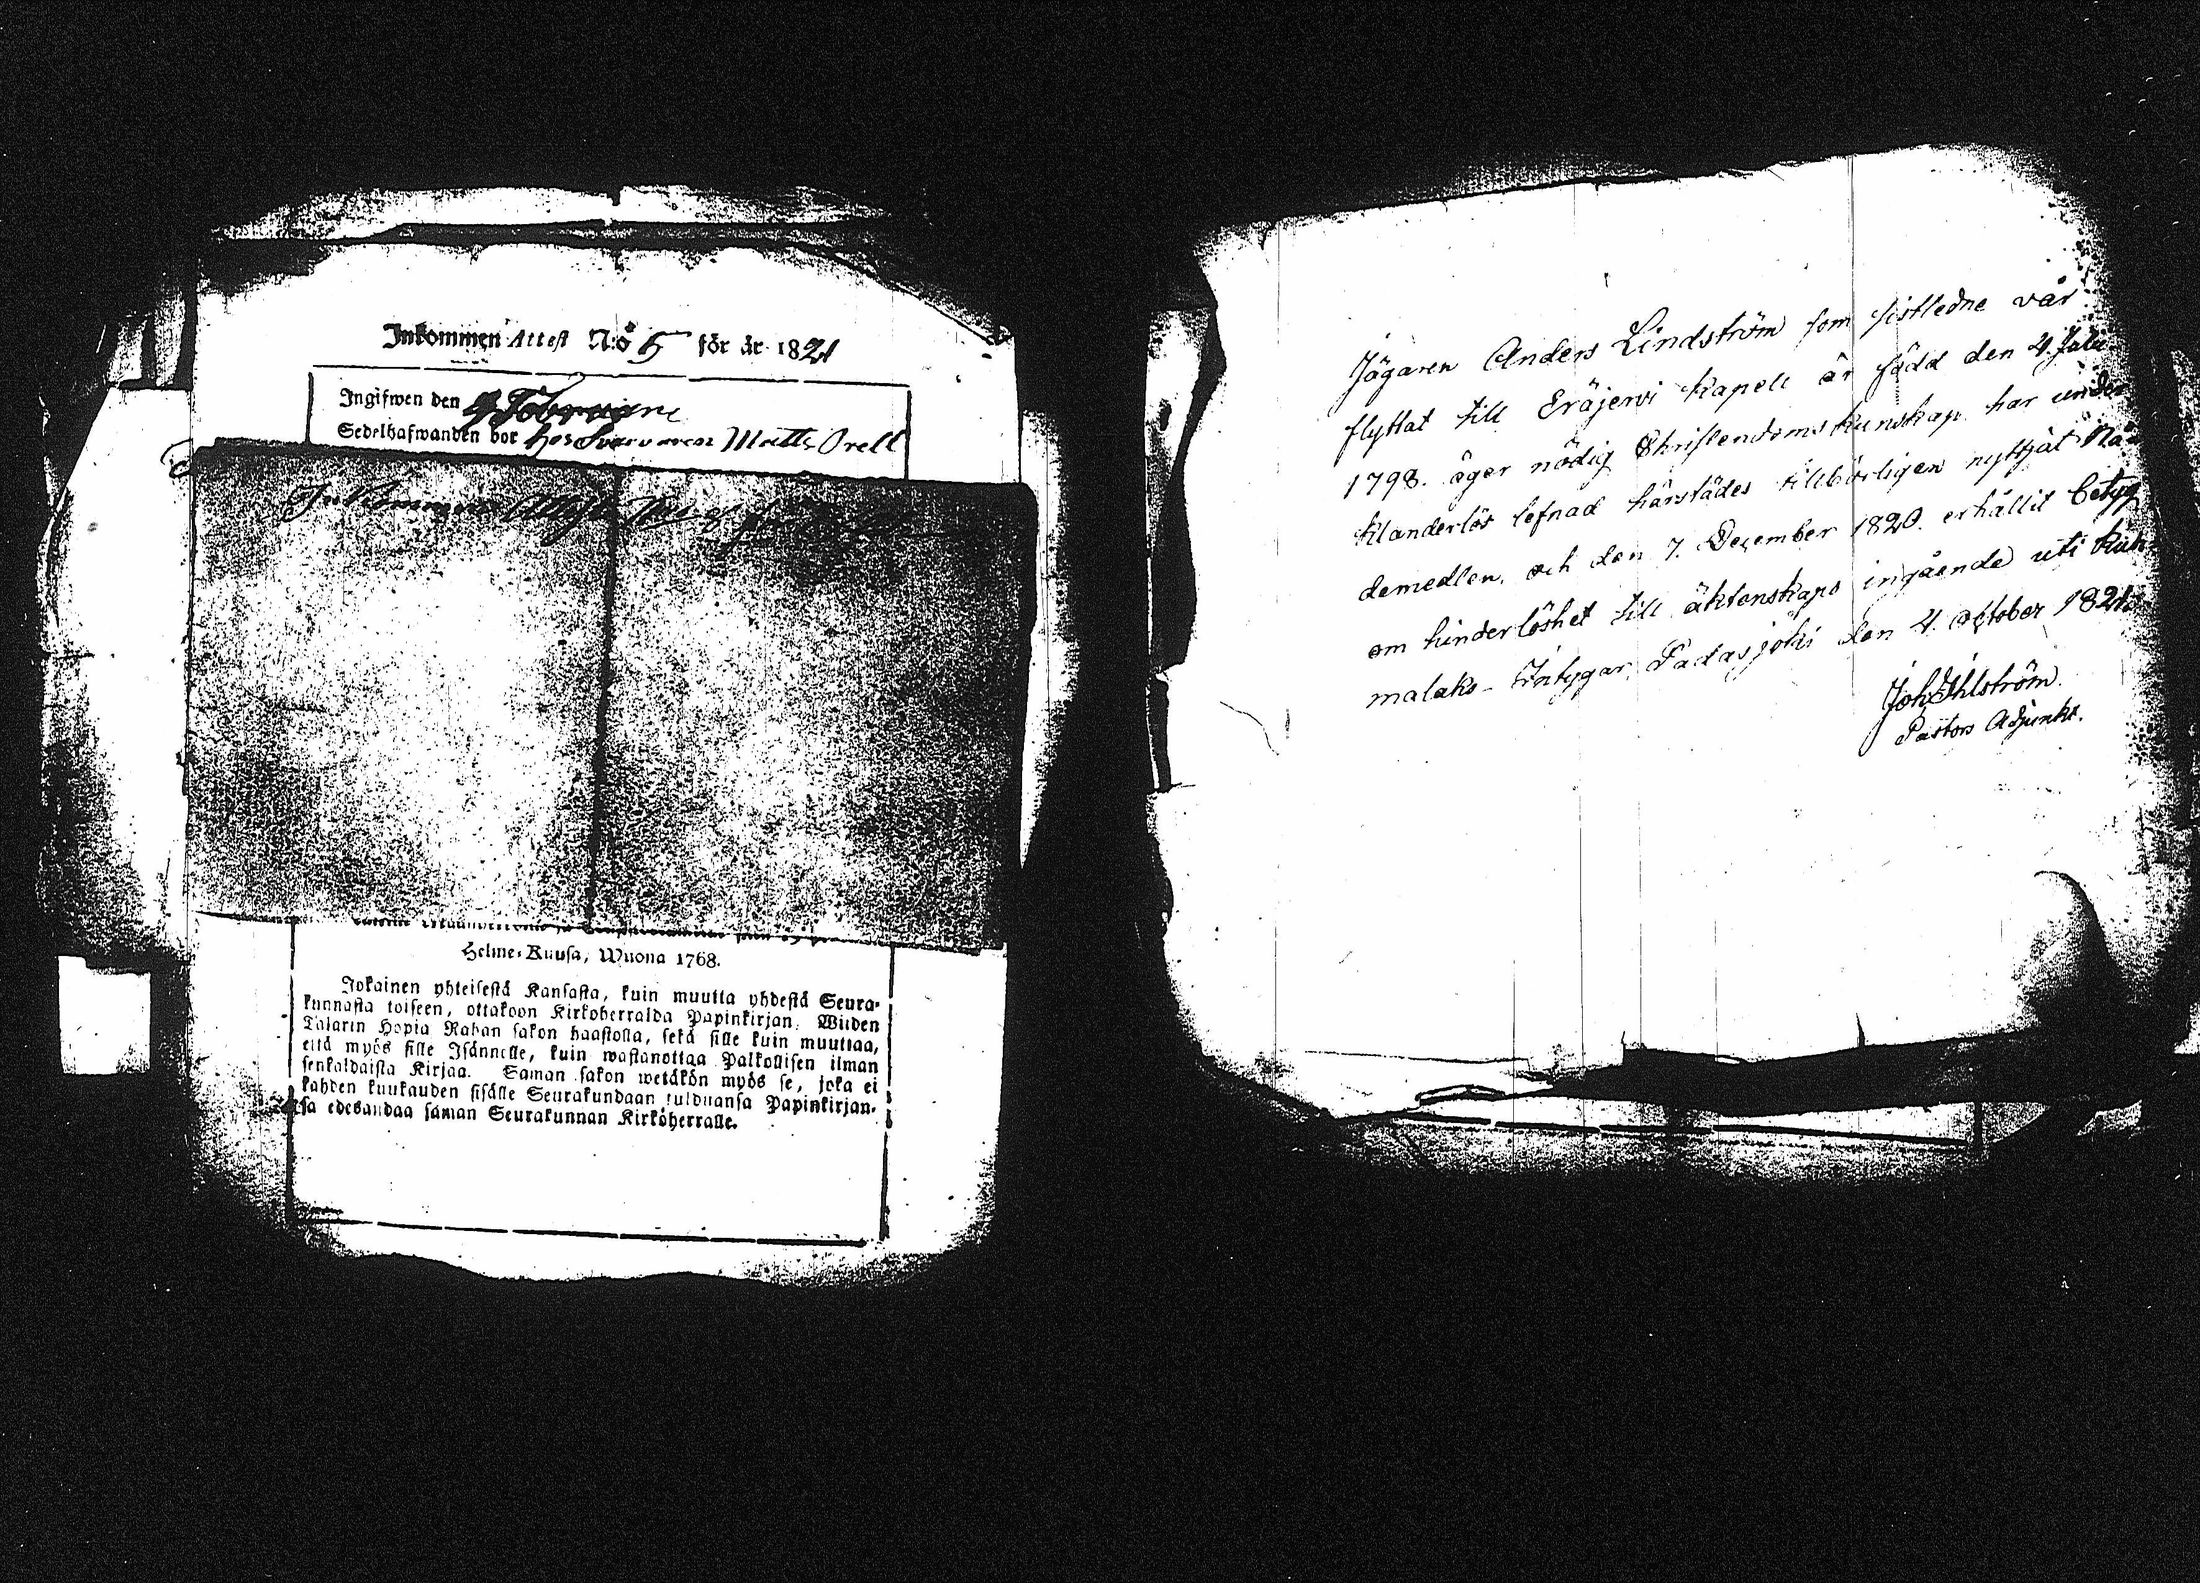 Inkommen Attest N:o 5 för år 1821
Ingifwen den 4 Februarii
Sedelhafwanden bor hos Svarvaren Matts Orell
Inkommen Attest
Helme-Kuusa, Wuona 1768.
Jokainen yhteisestä Kansasta, kuin muutta yhdestä Seura-
kunnasta toiseen, ottakoon Kirkoherralda Papinkirjan. Wiiden
Talarin Hopia Rahan sakon haastolla, sekä sille kuin muuttaa,
että myös sille Isännelle, kuin wastanottaa Palkollisen ilman
senkaldaista Kirjaa. Saman sakon wetäkön myös se, joka ei
kahden kuukauden sisälle Seurakundaan tulduansa Papinkirjan-
sa edesandaa saman Seurakunnan Kirkoherralle.
Jägaren Anders Lindström som sistledne vår
flyttat till Eräjerwi Kapell är född den 4 Julii
1798. äger nödig Christendoms kunskap. har under
klanderlös lefnad härstädes tillbörligen nyttjat Nå-
demedlen, och den 7. December 1820. erhållit betyg
om hinderlöshet till äktenskaps ingående uti Kuh-
malaks - Intygar, Padasjoki den 4. October 1821.
Joh. Ahlström.
Pastors Adjunkt.